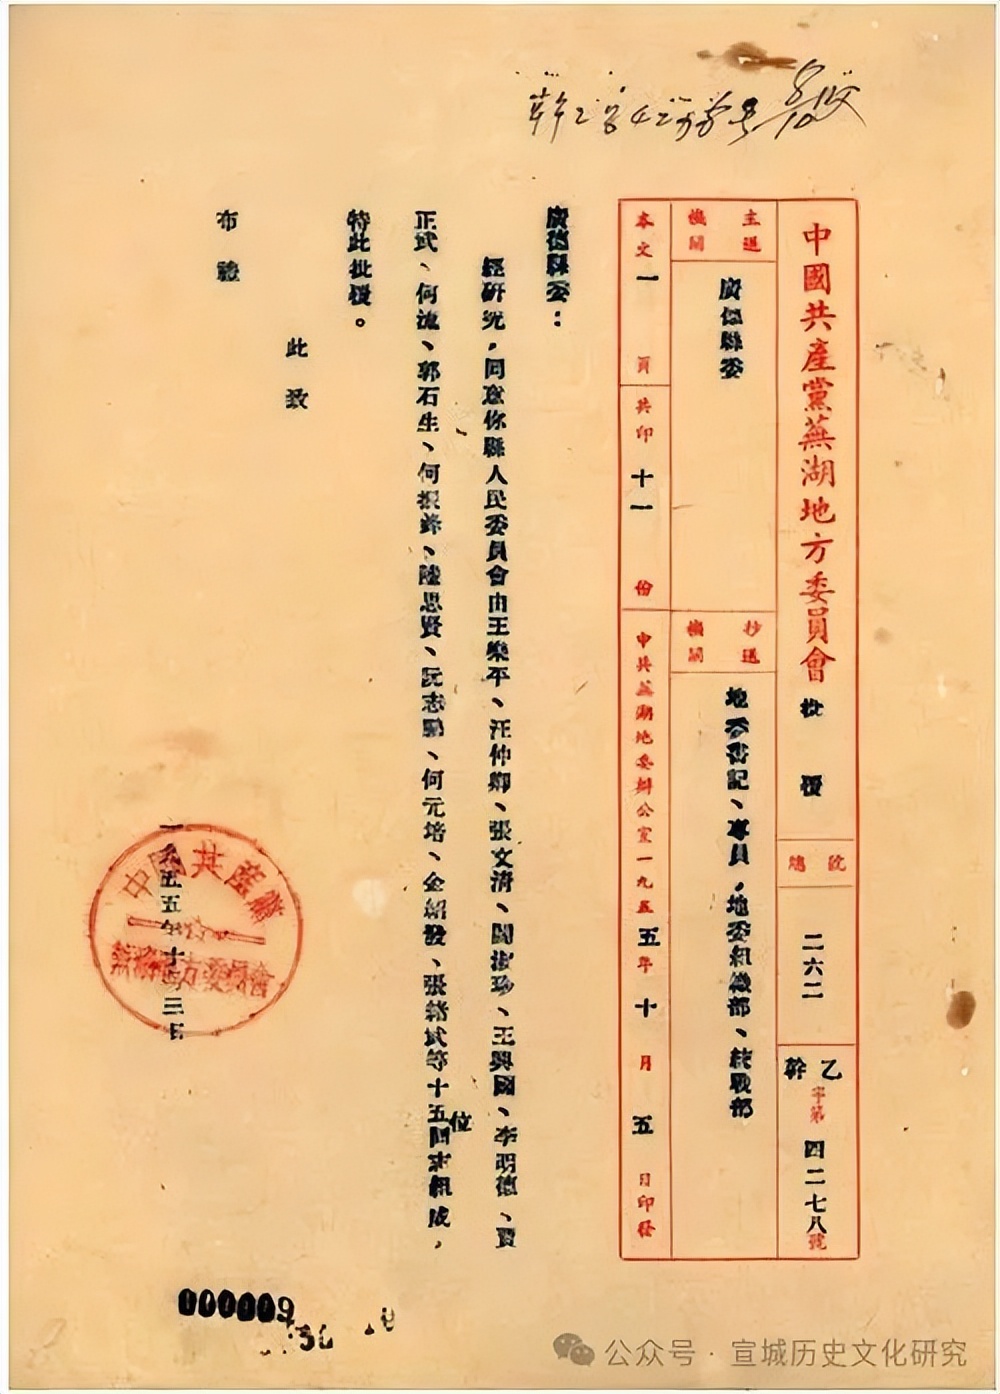 中國共產黨蕪湖地方委員會 批復
總號 二六二
乙幹字第四二七八號
主送機關 廣德縣委
抄送機關 地委書記、專員,地委組織部、統戰部
本文一頁 共印十一份 中共蕪湖地委辦公室一九五五年十月五日印發
廣德縣委:
經研究,同意你縣人民委員會由王樂平、汪仲鄉、張文清、闞淑珍、王興國、李明德、賈
正武、何流、郭石生、何振鋒、陸思賢、阮志鵬、何元培、金紹發、張緒武等十五位同志組成,
特此批復。
此致
布禮
中國共產黨
蕪湖地方委員會
一九五五年十月三日
000009
公众号·宣城历史文化研究